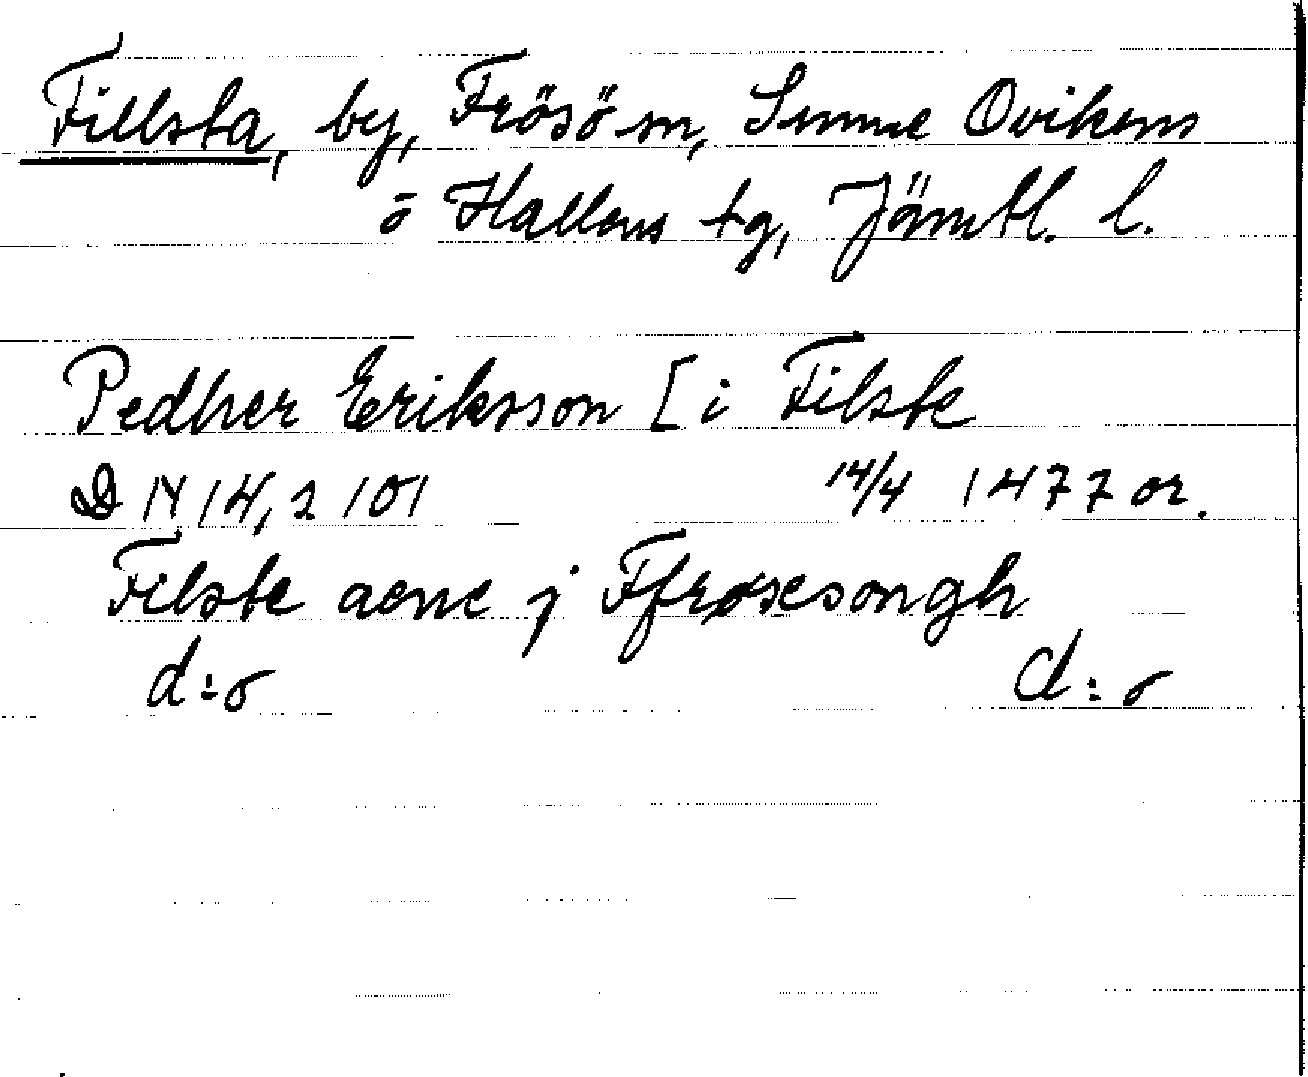 Fillsta, by, Frösö sn, Sunne Ovikens
o Hallens tg, Jämtl. l.
Pedher Eriksson [ i Filste
DN 14, 2 101 14/4 1477 or.
Filste aene j Ffrøsesongh
d:o d:o